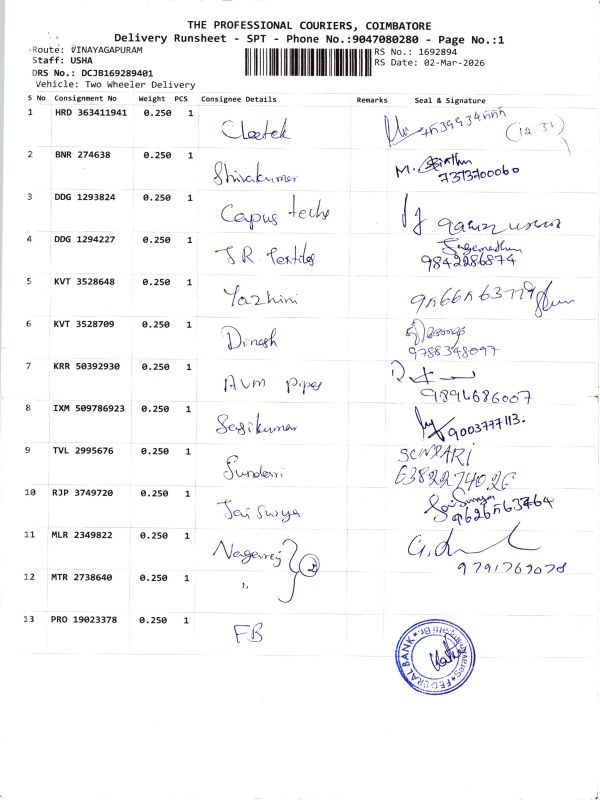 THE PROFESSIONAL COURIERS, COIMBATORE
Delivery Runsheet - SPT - Phone No.:9047080280 - Page No.:1
Route: VINAYAGAPURAM
RS No.: 1692894
Staff: USHA
RS Date: 02-Mar-2026
DRS No.: DCJB169289401
Vehicle: Two Wheeler Delivery
S No Consignment No Weight PCS Consignee Details Remarks Seal & Signature
1 HRD 363411941 0.250 1
2 BNR 274638 0.250 1 Shivakumar M.
7373700060
3 DDG 1293824 0.250 1 Capus techs
4 DDG 1294227 0.250 1 JR Textiles
9842286874
5 KVT 3528648 0.250 1 Yazhini
6 KVT 3528709 0.250 1 Dinesh
9788348097
7 KRR 50392930 0.250 1 AVM Pipes
9894686007
8 IXM 509786923 0.250 1 Sasikumar 9003777113.
9 TVL 2995676 0.250 1 Sundari SUNDARI
6382274026
10 RJP 3749720 0.250 1 Jai Surya Jai Surya
11 MLR 2349822 0.250 1 Nagaraj 2
9791763078
12 MTR 2738640 0.250 1 "
13 PRO 19023378 0.250 1 FB
FEDERAL BANK